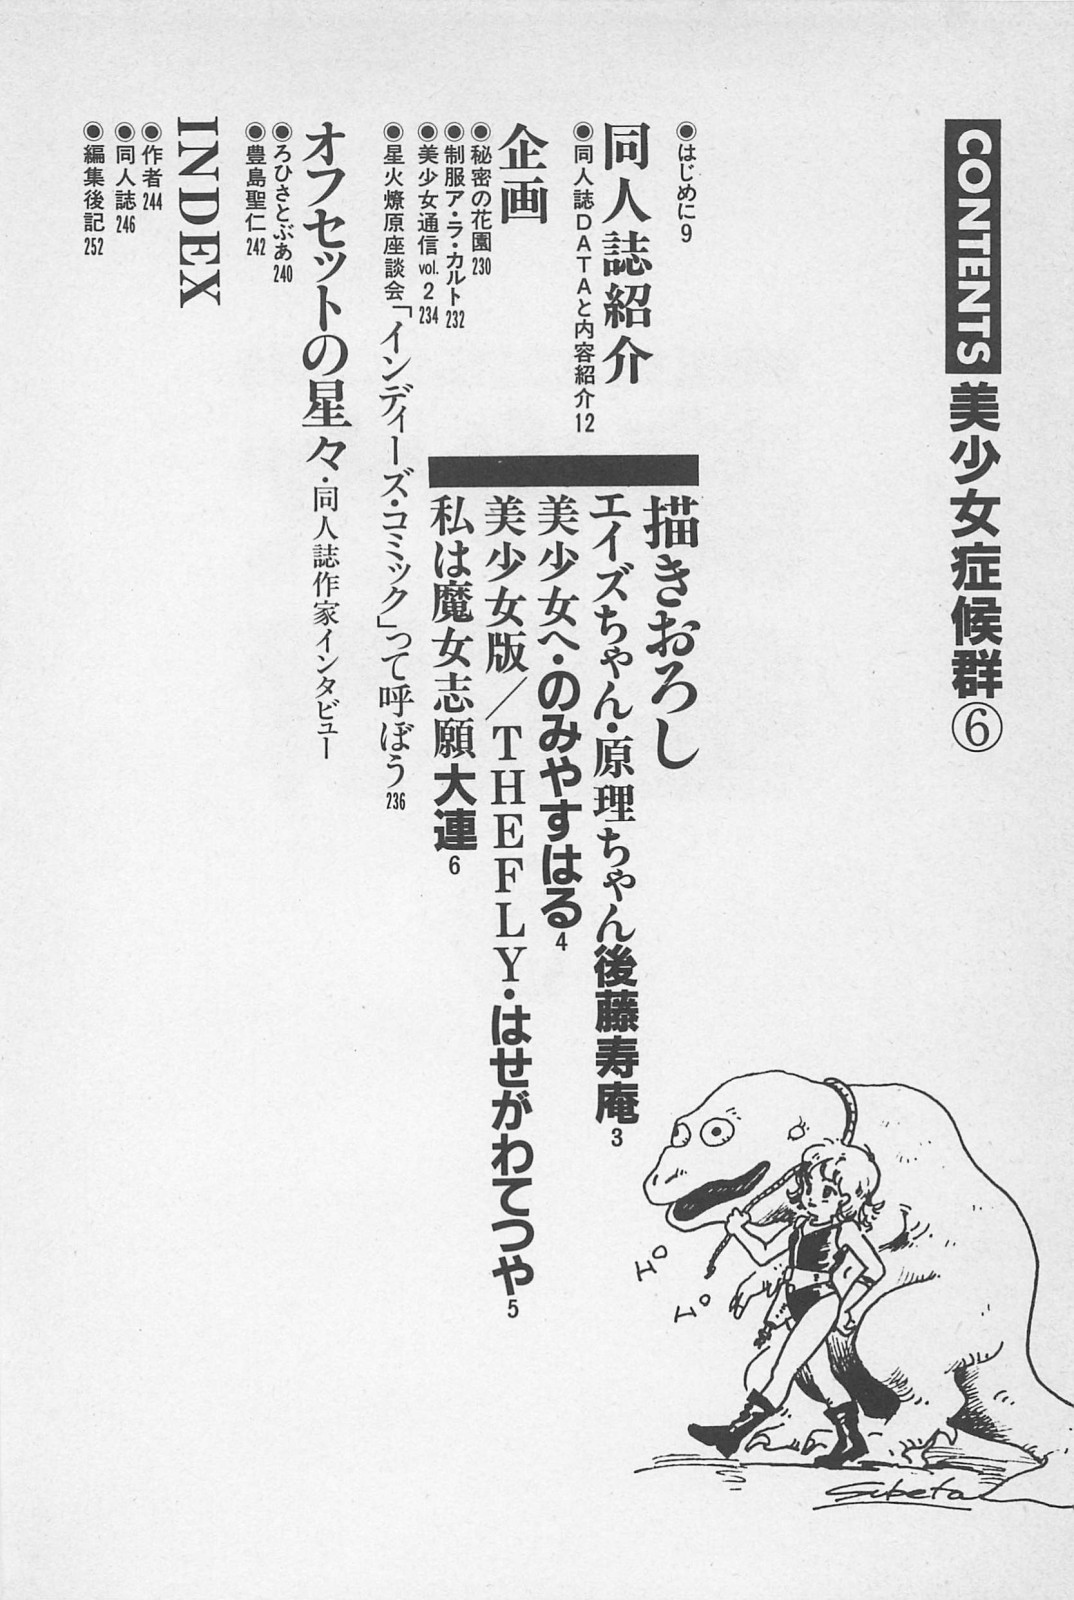 CONTENTS 美少女症候群⑥
◉はじめに9
同人誌紹介
◉同人誌DATAと内容紹介12
描きおろし
エイズちゃん・原理ちゃん後藤寿庵3
美少女へ・のみやすはる4
美少女版／THEFLY・はせがわてつや5
私は魔女志願大連6
企画
◉秘密の花園230
◉制服ア・ラ・カルト232
◉美少女通信vol.2 234
◉星火燎原座談会「インディーズ・コミック」って呼ぼう236
オフセットの星々・同人誌作家インタビュー
◉ろひさとぶあ240
◉豊島聖仁242
INDEX
◉作者244
◉同人誌246
◉編集後記252